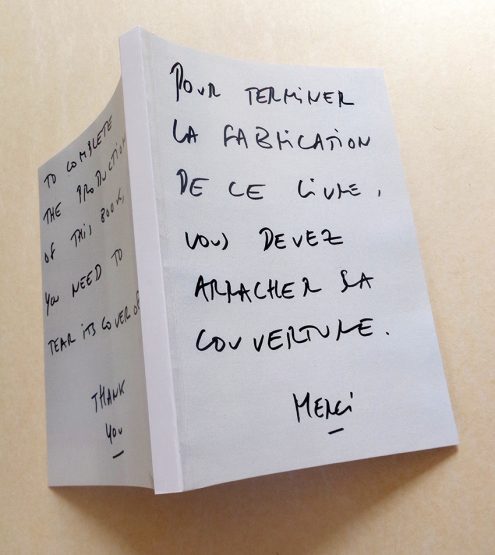 POUR TERMINER
LA FABRICATION
DE CE LIVRE,
VOUS DEVEZ
ARRACHER SA
COUVERTURE.
MERCI
TO COMPLETE
THE PRODUCTION
OF THIS BOOK,
YOU NEED TO
TEAR ITS COVER OFF
THANK
YOU